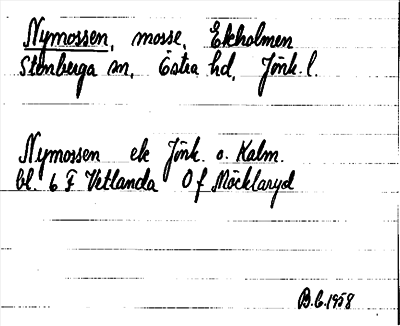 Nymossen, mosse, Ekholmen
Stenberga sn, Östra hd, Jönk. l.
Nymossen ek Jönk. o. Kalm.
bl. 6 F Vetlanda Of Möcklaryd
B.C. 1958